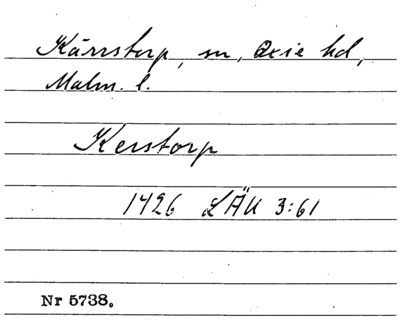 Kärrstorp, sn, Oxie hd,
Malm. l.
Kerstorp
1426 LÄU 3:61
Nr 5738.